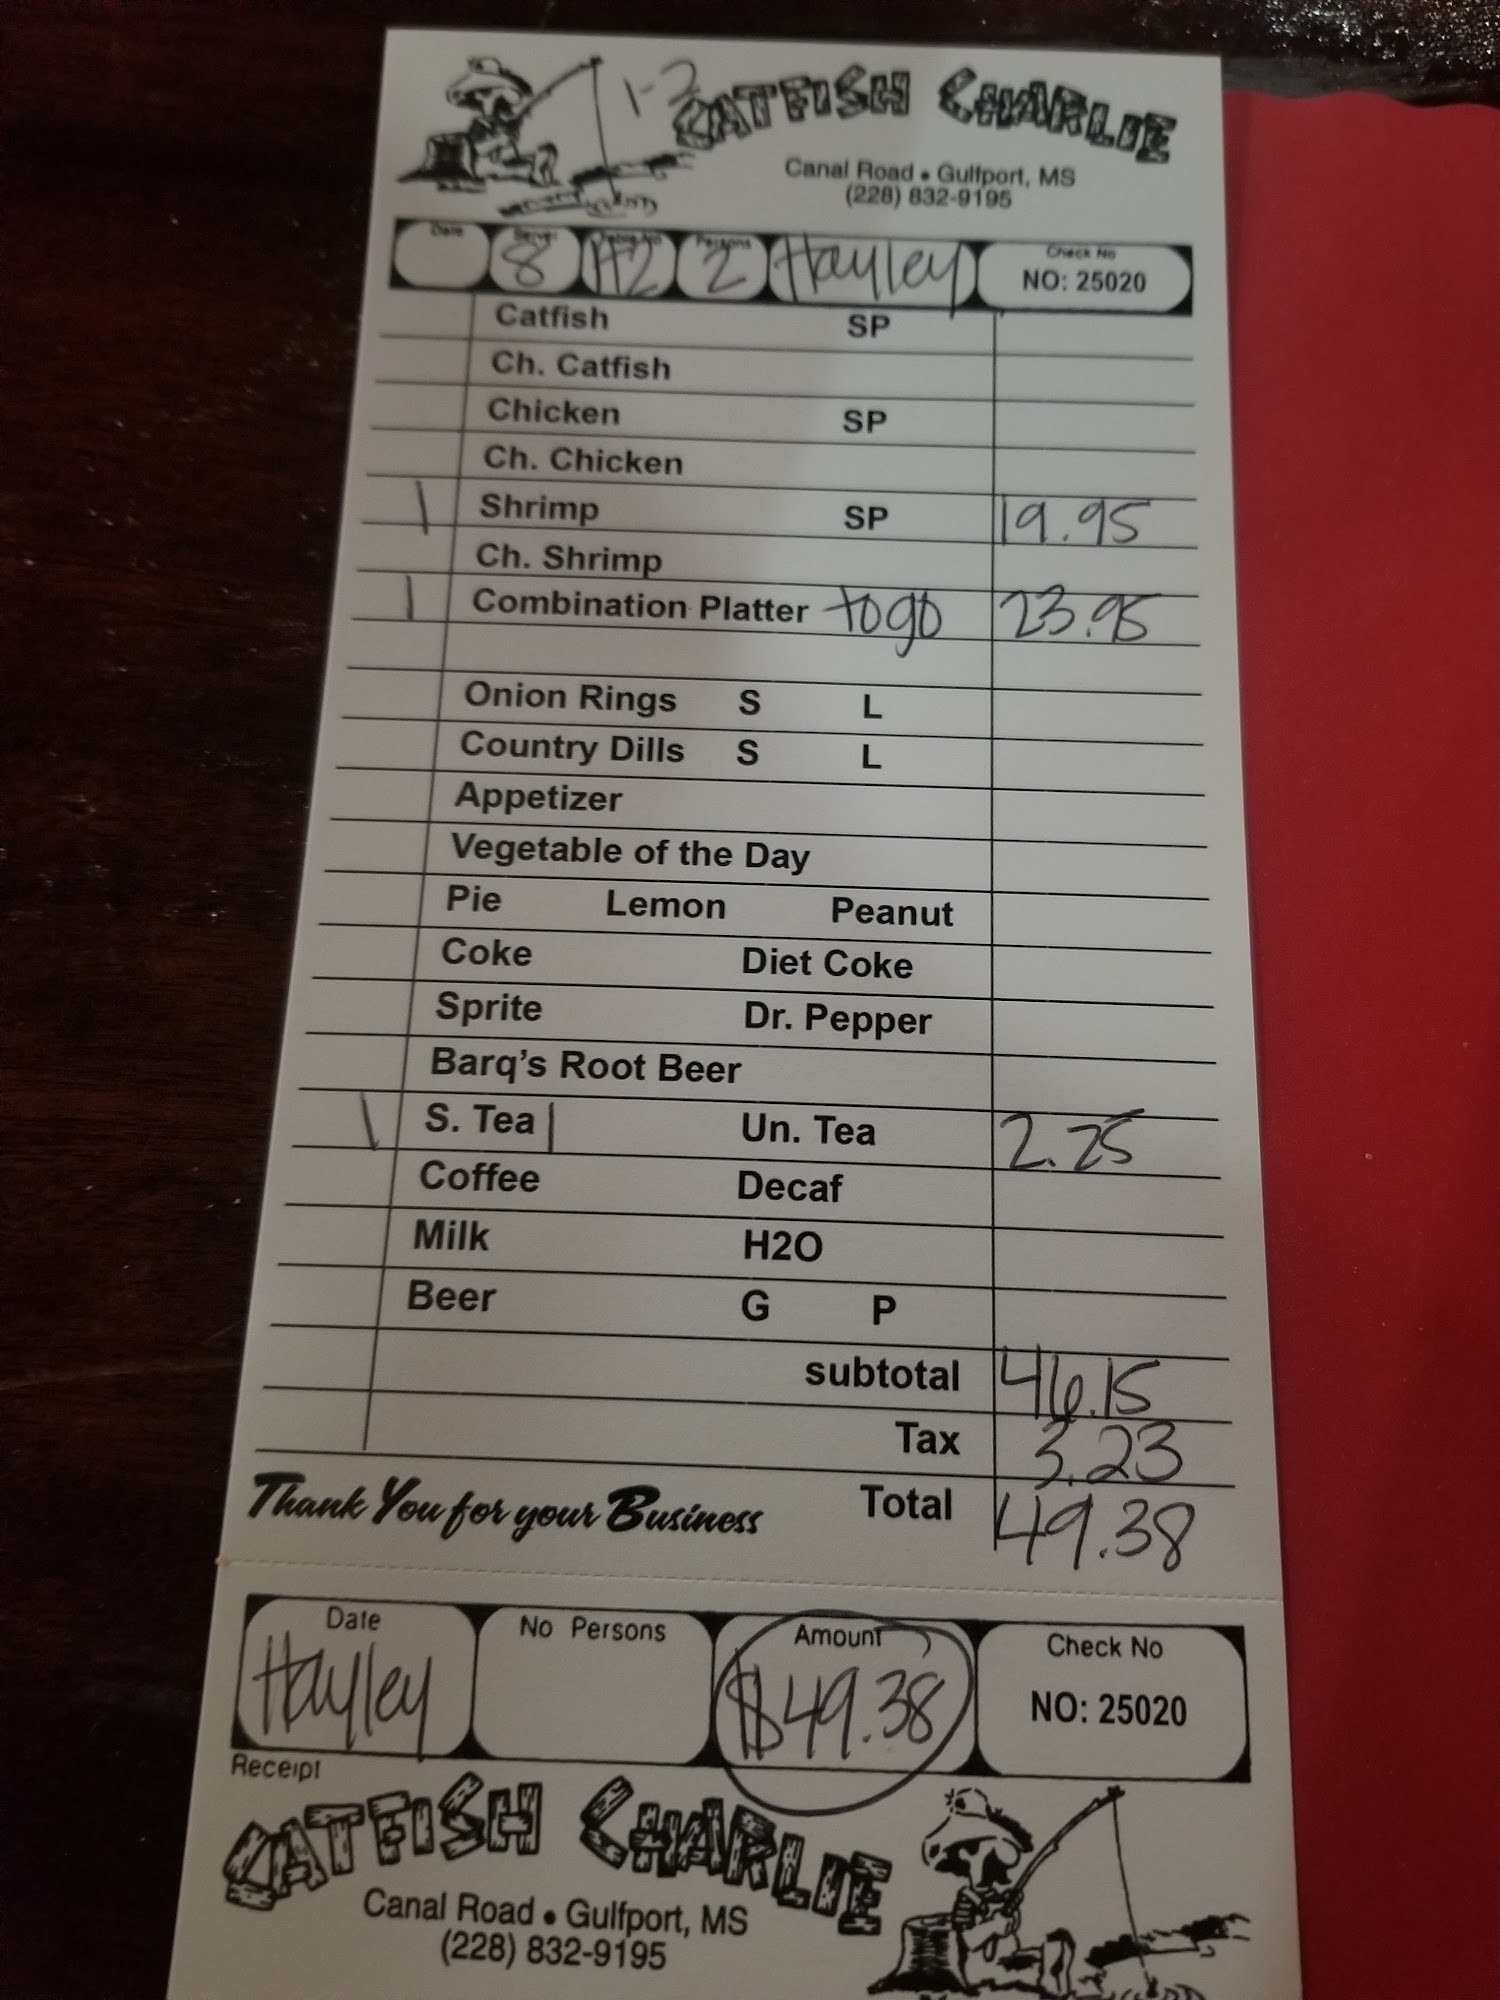 1-2
CATFISH CHARLIE
Canal Road • Gulfport, MS
(228) 832-9195
Date Server Table No Persons Check No
8 H2 2 Hayley NO: 25020
Catfish SP
Ch. Catfish
Chicken SP
Ch. Chicken
1 Shrimp SP 19.95
Ch. Shrimp
1 Combination Platter togo 23.95
Onion Rings S L
Country Dills S L
Appetizer
Vegetable of the Day
Pie Lemon Peanut
Coke Diet Coke
Sprite Dr. Pepper
Barq's Root Beer
1 S. Tea | Un. Tea 2.25
Coffee Decaf
Milk H2O
Beer G P
subtotal 46.15
Tax 3.23
Thank You for your Business Total 49.38
Date No Persons Amount Check No
Hayley $49.38 NO: 25020
Receipt
CATFISH CHARLIE
Canal Road • Gulfport, MS
(228) 832-9195